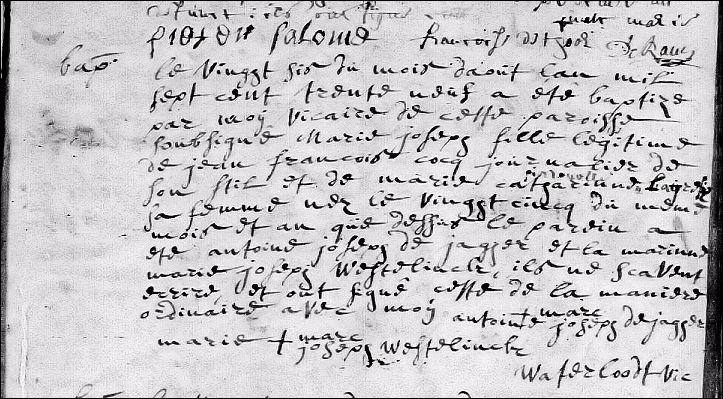 pieter salome francois
bap:
le vingt sis du mois daout lan mil
sept cent trente neuf a eté baptizé
par moy vicaire de cette paroisse
soubsigné Marie joseph fille legitime
de jean francois cocq journalier de
son stil et de marie catharinne
sa femme nez le vingt cincq du meme
mois et an que dessus le parein a
eté antoine joseph de jagger et la marinne
marie joseph Westelinck, ils ne scavent
ecrire, et ont signé cette de la maniere
ordinaire avec moy antoine + marc joseph dejagger
marie + marc joseph Westelinck
Waterloodt vic